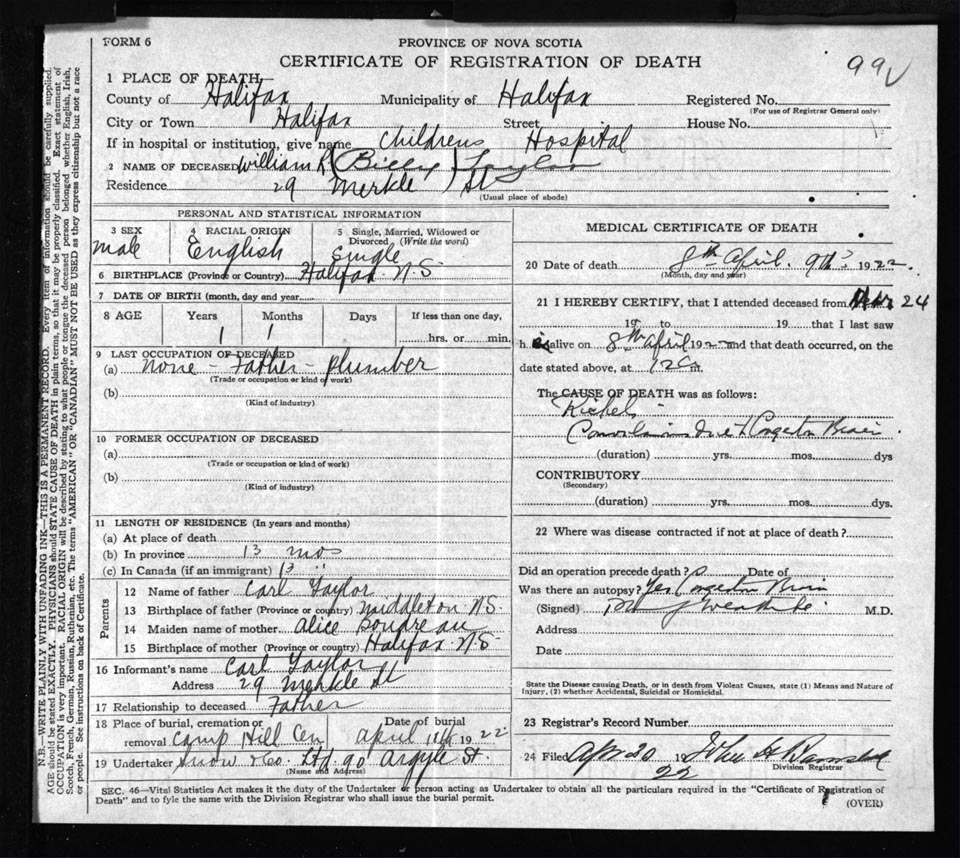 FORM 6
PROVINCE OF NOVA SCOTIA
CERTIFICATE OF REGISTRATION OF DEATH
99
1 PLACE OF DEATH—
County of Halifax Municipality of Halifax Registered No.
(For use of Registrar General only)
City or Town Halifax Street House No.
If in hospital or institution, give name Childrens Hospital
2 NAME OF DECEASED William R (Billy) Taylor
Residence 29 Merkle St
(Usual place of abode)
PERSONAL AND STATISTICAL INFORMATION
3 SEX 4 RACIAL ORIGIN 5 Single, Married, Widowed or
Divorced (Write the word)
Male English Single
6 BIRTHPLACE (Province or Country) Halifax N.S
7 DATE OF BIRTH (month, day and year
8 AGE Years Months Days If less than one day,
1 1 hrs. or min.
9 LAST OCCUPATION OF DECEASED
(a) None - Father - Plumber
(Trade or occupation or kind of work)
(b)
(Kind of industry)
10 FORMER OCCUPATION OF DECEASED
(a)
(Trade or occupation or kind of work)
(b)
(Kind of industry)
11 LENGTH OF RESIDENCE (In years and months)
(a) At place of death
(b) In province 13 mos
(c) In Canada (if an immigrant) 13 "
Parents
12 Name of father Carl Taylor
13 Birthplace of father (Province or country) Middleton N.S.
14 Maiden name of mother Alice Boudreau
15 Birthplace of mother (Province or country) Halifax N.S
16 Informant's name Carl Taylor
Address 29 Merkle St
17 Relationship to deceased Father
18 Place of burial, cremation or Date of burial
removal Camp Hill Cem April 11th 1922
19 Undertaker Snow & Co. Ltd. 90 Argyle St.
(Name and Address)
MEDICAL CERTIFICATE OF DEATH
20 Date of death 8th April. 9th 1922.
(Month, day and year)
21 I HEREBY CERTIFY, that I attended deceased from Mar 24
19 to 19 that I last saw
h is alive on 8th April 1922 and that death occurred, on the
date stated above, at m.
The CAUSE OF DEATH was as follows:
Convulsions due
(duration) yrs. mos. dys
CONTRIBUTORY
(Secondary)
(duration) yrs. mos. dys.
22 Where was disease contracted if not at place of death?
Did an operation precede death? Date of
Was there an autopsy? Yes
(Signed) M.D.
Address
Date
State the Disease causing Death, or in death from Violent Causes, state (1) Means and Nature of
Injury, (2) whether Accidental, Suicidal or Homicidal.
23 Registrar's Record Number
24 Filed Apr 20 1922 John
Division Registrar
SEC. 46—Vital Statistics Act makes it the duty of the Undertaker or person acting as Undertaker to obtain all the particulars required in the "Certificate of Registration of
Death" and to fyle the same with the Division Registrar who shall issue the burial permit.
(OVER)
N.B.—WRITE PLAINLY WITH UNFADING INK—THIS IS A PERMANENT RECORD. Every item of information should be carefully supplied.
AGE should be stated EXACTLY. PHYSICIANS should STATE CAUSE OF DEATH in plain terms, so that it may be properly classified. Exact statement of
OCCUPATION is very important. RACIAL ORIGIN will be described by stating to what people or tongue the deceased person belonged whether English, Irish,
Scotch, French, German, Russian, Ruthenian, etc. The terms "AMERICAN" OR "CANADIAN" MUST NOT BE USED as they express citizenship but not a race
or people. See instructions on back of Certificate.